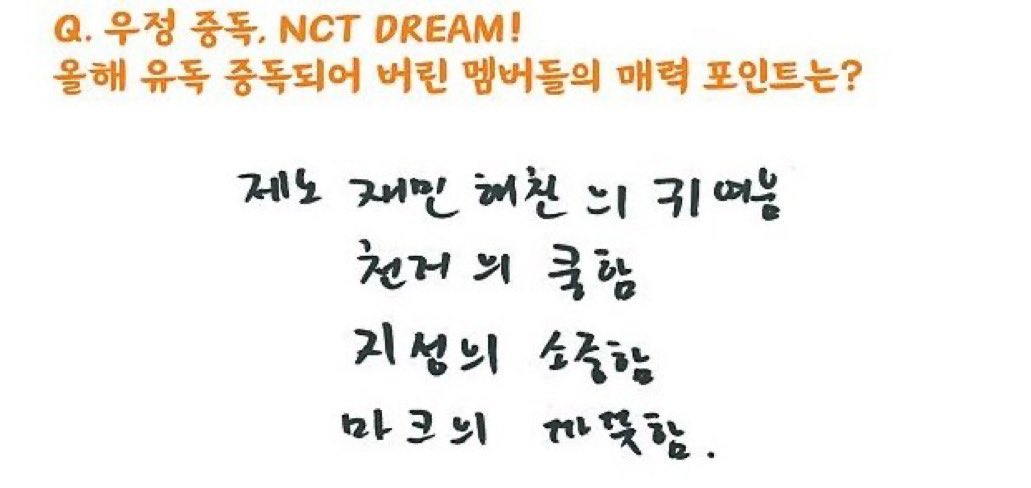 Q. 우정 중독, NCT DREAM!
올해 유독 중독되어 버린 멤버들의 매력 포인트는?
제노 재민 해찬의 귀여움
천러의 쿨함
지성의 소중함
마크의 따뜻함.